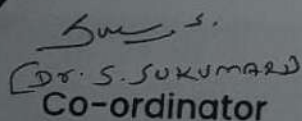 (Dr. S. SUKUMAR)
Co-ordinator